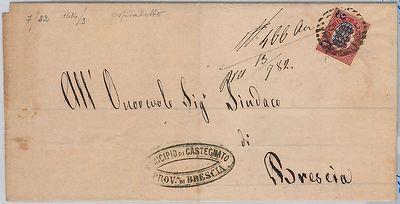 7/82 1614/3 ospitaletto
N° 466
13
782.
All' Onorevole Sigr Sindaco
di
Brescia
MUNICIPIO DI CASTEGNATO
PROV. DI BRESCIA